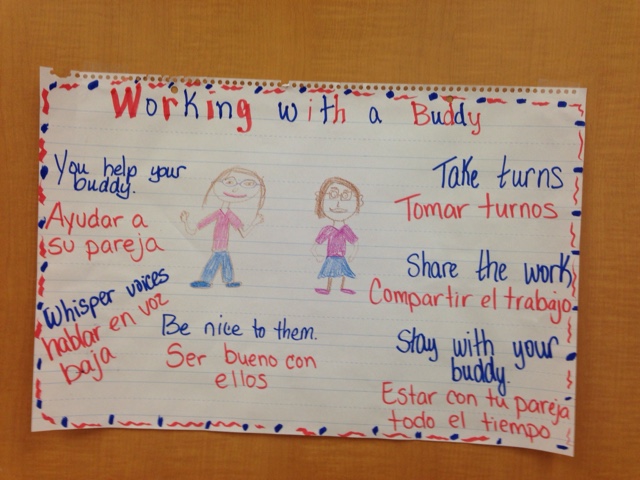 Working with a Buddy
You help your
buddy.
Ayudar a
su pareja
Whisper voices
hablar en voz
baja
Be nice to them.
Ser bueno con
ellos
Take turns
Tomar turnos
Share the work
Compartir el trabajo
Stay with your
buddy.
Estar con tu pareja
todo el tiempo